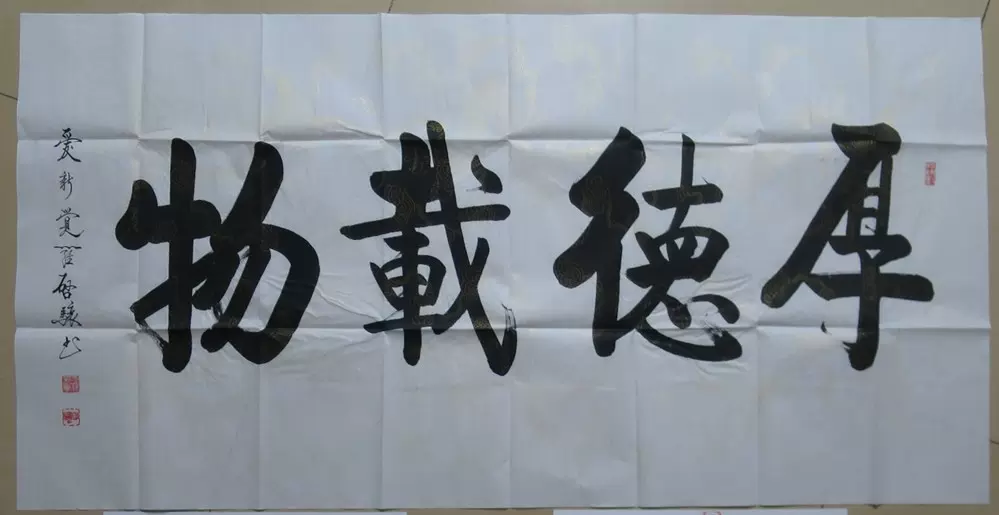 厚德載物
愛新覺羅啓驤書